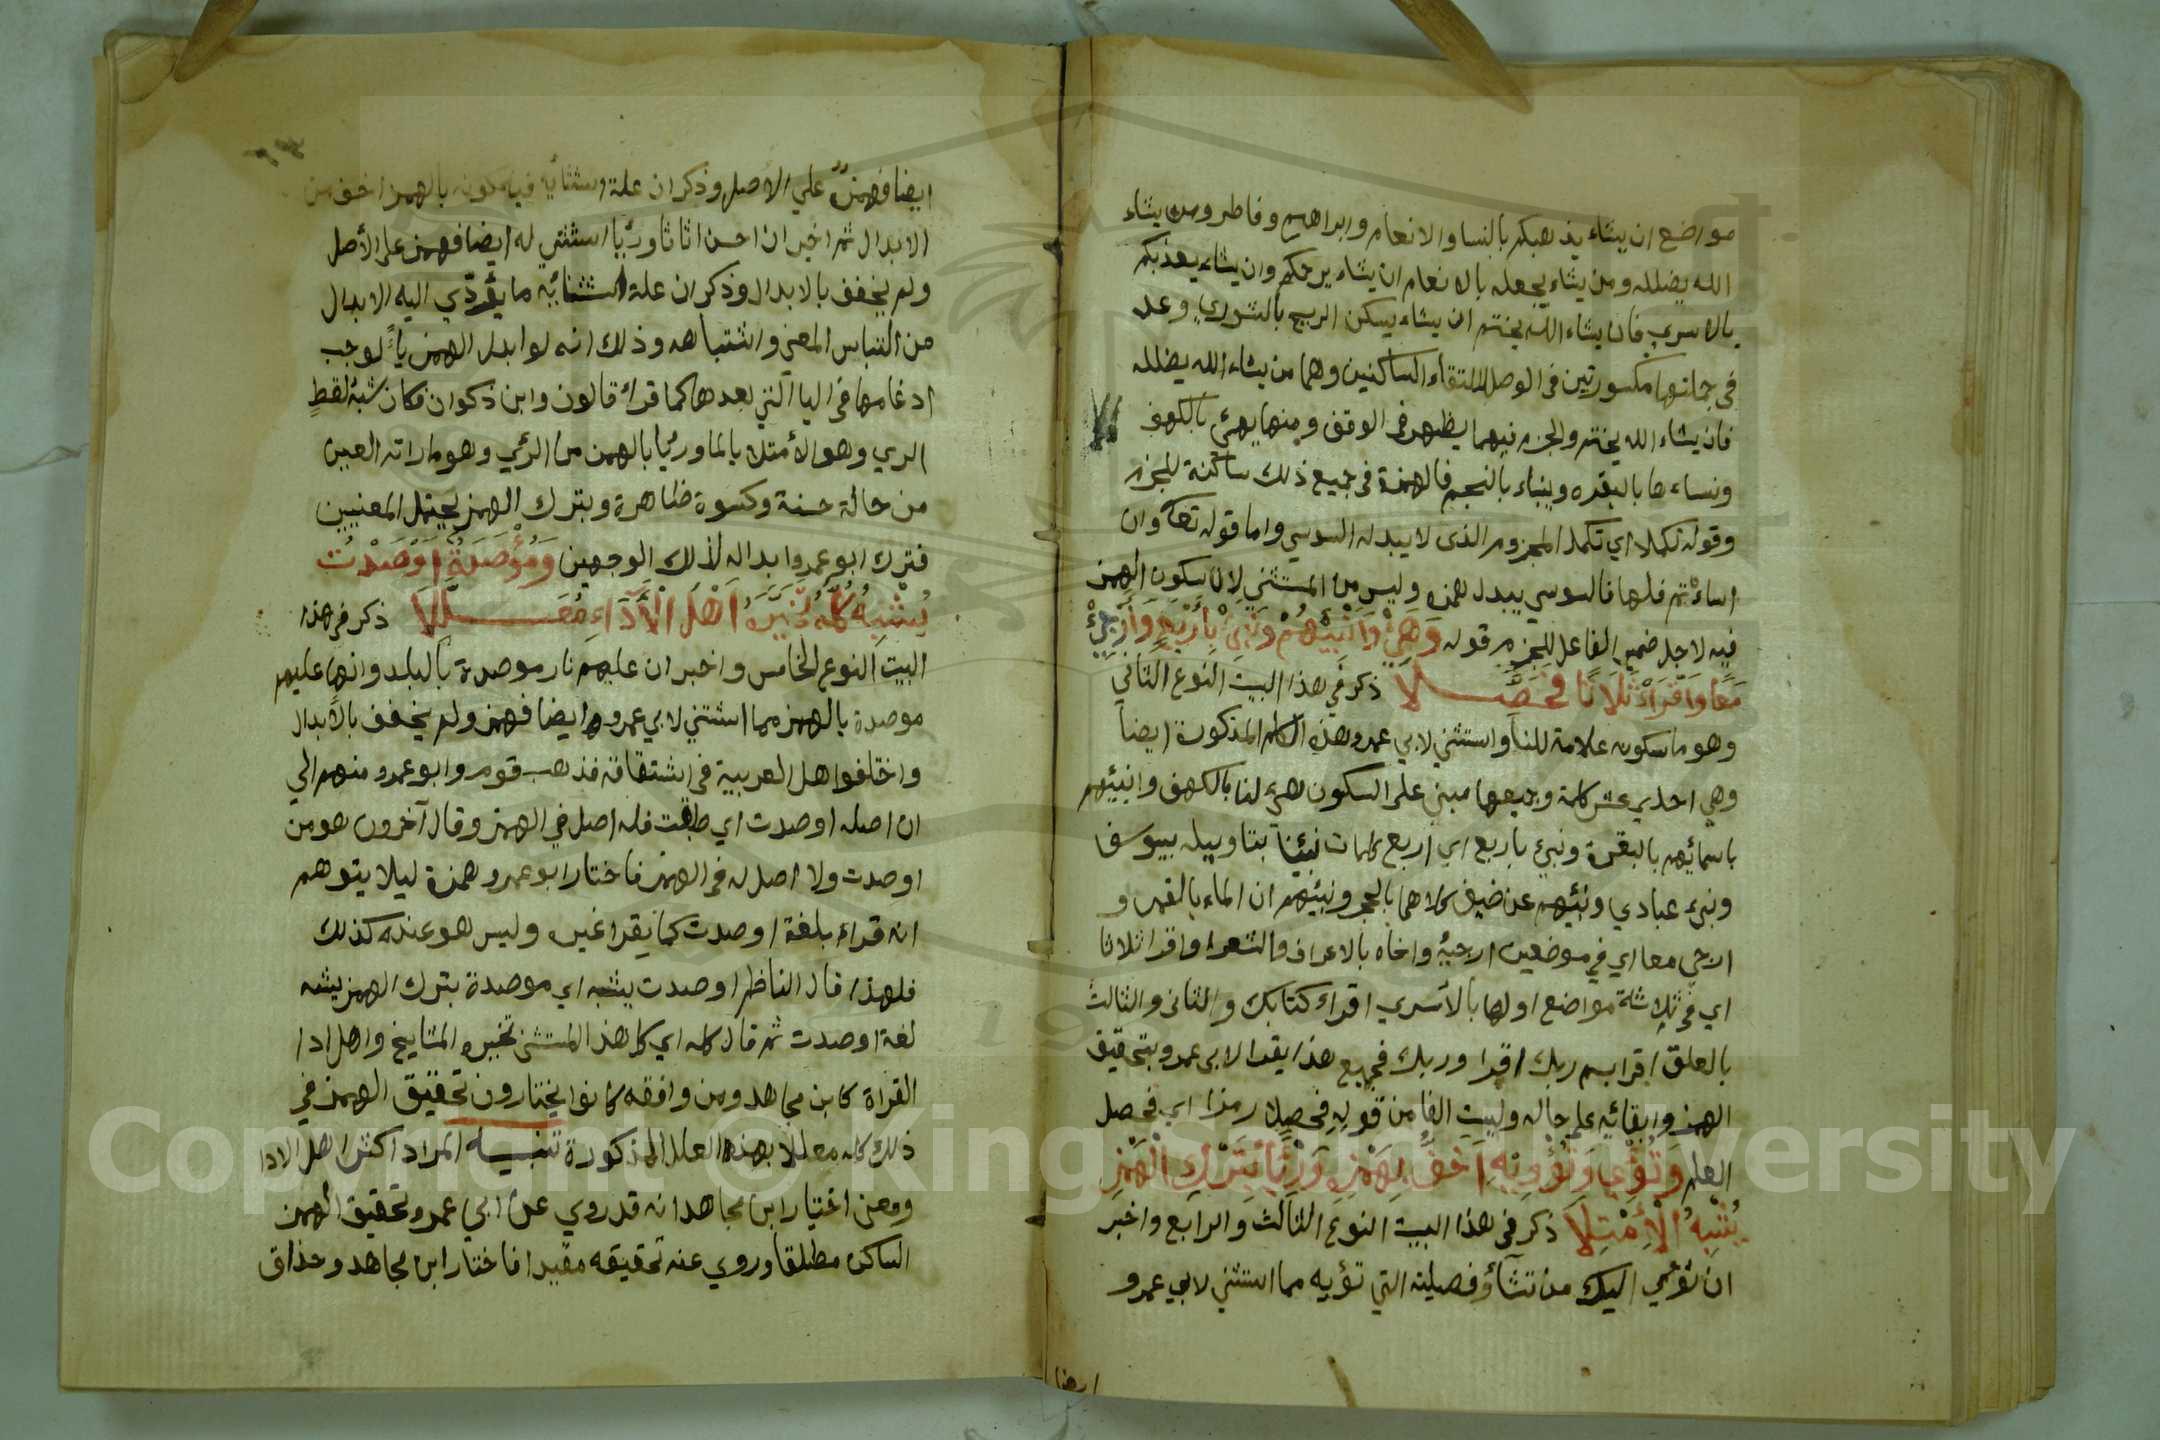 مواضع ان يشاء يذهبكم بالنسا والانعام وابراهيم وفاطر ومن يشاء
الله يضلله ومن يشاء يجعله بالانعام ان يشاء يرحمكم وان يشاء يعذبكم
بالاسري فان يشاء الله يختم ان يشاء يسكن الريح بالشوري وعد
في جملتها مكسورتين في الوصل لالتقاء الساكنين وهما من يشاء الله يضلله
فان يشاء الله يختم والجزم فيهما يظهر في الوقف ومنها يهيئ بالكهف
وننساءها بالبقره وينباء بالنجم فالهمزة في جميع ذلك ساكنة للجزم
وقوله تكملا اي تكمل المجزوم الذى لا يبدله السوسي واما قوله تعا وان
اساءتم فلها فالسوسي يبدل همزه وليس من المستثني لان سكون الهمز
فيه لاجل ضمير الفاعل للجزم قوله وَهَيِّئْ وَاَنْبِيْهُمْ وَنَبِّئْ بِأَرْبَعٍ وَأَرْجِئْ
مَعًا وَاقْرَاءْ ثَلَاثًا فَحَصِّلَا ذكر في هذا البيت النوع الثاني
وهو ما سكونه علامة للبنا واستثني لابي عمرو هذه الكلم المذكورة ايضا
وهي احدي عشر كلمة وجميعها مبني على السكون هيئ لنا بالكهف وانبيئهم
باسمائهم بالبقرة ونبئ باربع اي اربع كلمات نبئنا بتاويله بيوسف
ونبئ عبادي ونبئهم عن ضيف كلاهما بالحجر ونبيئهم ان الماء بالقمر و
ارجي معا اي في موضعين ارجئه واخاه بالاعراف والشعرا واقرا ثلاثا
اي في ثلاثة مواضع اولها بالأسري اقراء كتابك والثانى والثالث
بالعلق اقرا بسم ربك اقرا وربك فجميع هذا يقرا لابي عمرو بتحقيق
الهمز وابقائه علي حاله وليست الفا من قوله فحصلا رمزا اي فحصل
العلم وَتُؤْوِي وَتُؤْوِيْهِ اَخَفُّ بِهَمْزِهِ وَرِئْيًا بِتَرْكِ الْهَمْزِ
يُشْبِهُ الْأِمْتِلَا ذكر في هذا البيت النوع الثالث والرابع واخبر
ان تؤي اليك من تشآؤ فصيلته التي تؤيه مما استثني لابي عمرو
ايضا
ايضا فهمز علي الأصل وذكر ان علة استثنائه فيه كونه بالهمز اخف من
الابدال ثم اخبر ان احسن اثاثا وريّا استثني له ايضا فهمز على الأصل
ولم يخفف بالابدال وذكر ان علة استثنائه ما يؤدّي اليه الابدال
من التباس المعني واشتباهه وذلك انه لو ابدل الهمز ياً لوجب
ادغامها في اليا التي بعدها كما قراء قالون وابن ذكوان فكان شبه لفظ
الري وهو الأمتلا بالما ورئيا بالهمز من الرئي وهو ما راته العين
من حالة حسنة وكسوة ظاهرة وبترك الهمز يحتمل المعنيين
فترك ابو عمرو ابداله لذلك الوجهين وَمُؤْصَدَةٌ اَوْصَدْتُ
يُشْبِهُ كُلُّهُ تَخَيَّرَهُ اَهْلُ الْأَدَاءِ مُعَلَّلَا ذكر في هذا
البيت النوع الخامس واخبر ان عليهم نار موصدة بالبلد وانها عليهم
موصدة بالهمزه مما استثني لابي عمرو ايضا فهمز ولم يخفف بالابدال
واختلفوا اهل العربية في اشتقاقه فذهب قوم وابو عمرو منهم الي
ان اصله اوصدت اي طبقت فله اصل في الهمز وقال آخرون هو من
اوصدت ولا اصل له في الهمز فاختار ابو عمرو همزة ليلا يتوهم
انه قراء بلغة اوصدت كما يقرا غيره وليس هو عنده كذلك
فلهذا قال الناظر اوصدت يشبه اي موصدة بترك الهمز يشبه
لغة اوصدت ثم قال كله اي كل هذا المستثنى تخيره المشايخ واهل ادا
القراة كابن مجاهد ومن وافقه كانوا يختارون تحقيق الهمز في
ذلك كله معللا بهذه العلل المذكورة تنبيه المراد اكثر اهل الادا
ومعني اختيار ابن مجاهد انه قد روي عن ابي عمرو تحقيق الهمز
الساكن مطلقا وروي عنه تحقيقه مقيدا فاختار ابن مجاهد وحذاق
Copyright © King Saud University